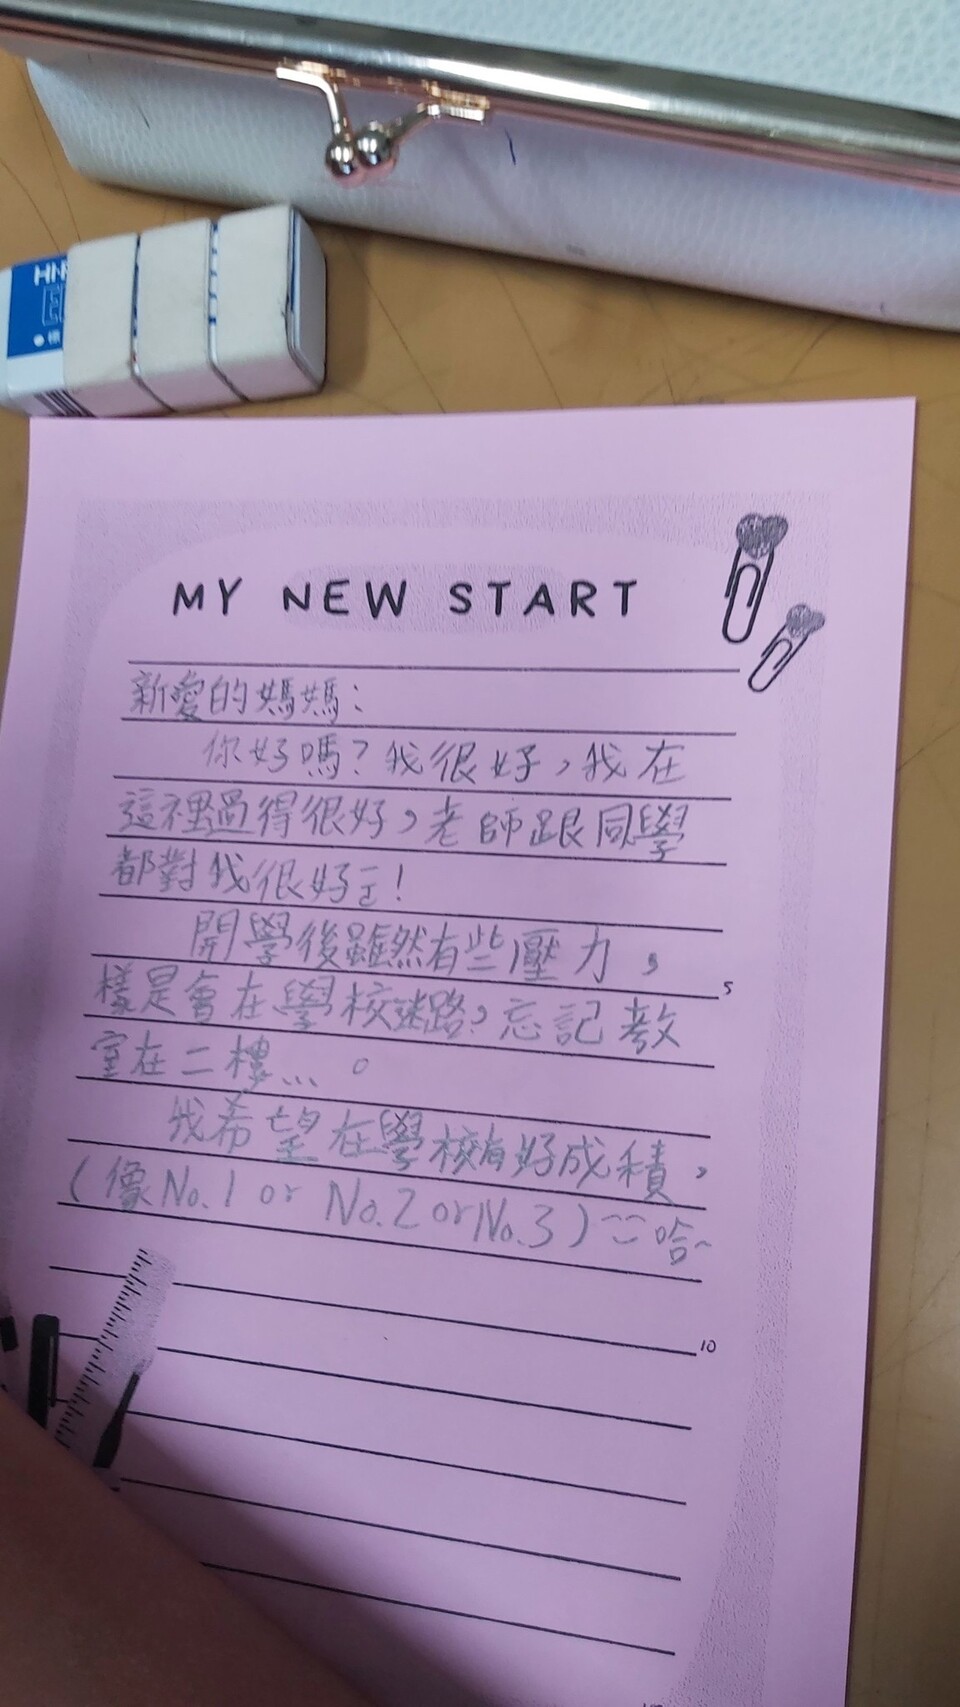 HN
MY NEW START
新愛的媽媽：
你好嗎？我很好，我在
這裡過得很好，老師跟同學
都對我很好！
開學後雖然有些壓力，
樣是會在學校迷路，忘記教
室在二樓...。
5
我希望在學校有好成積，
(像No.1 or No.2 or No.3)哈~
10